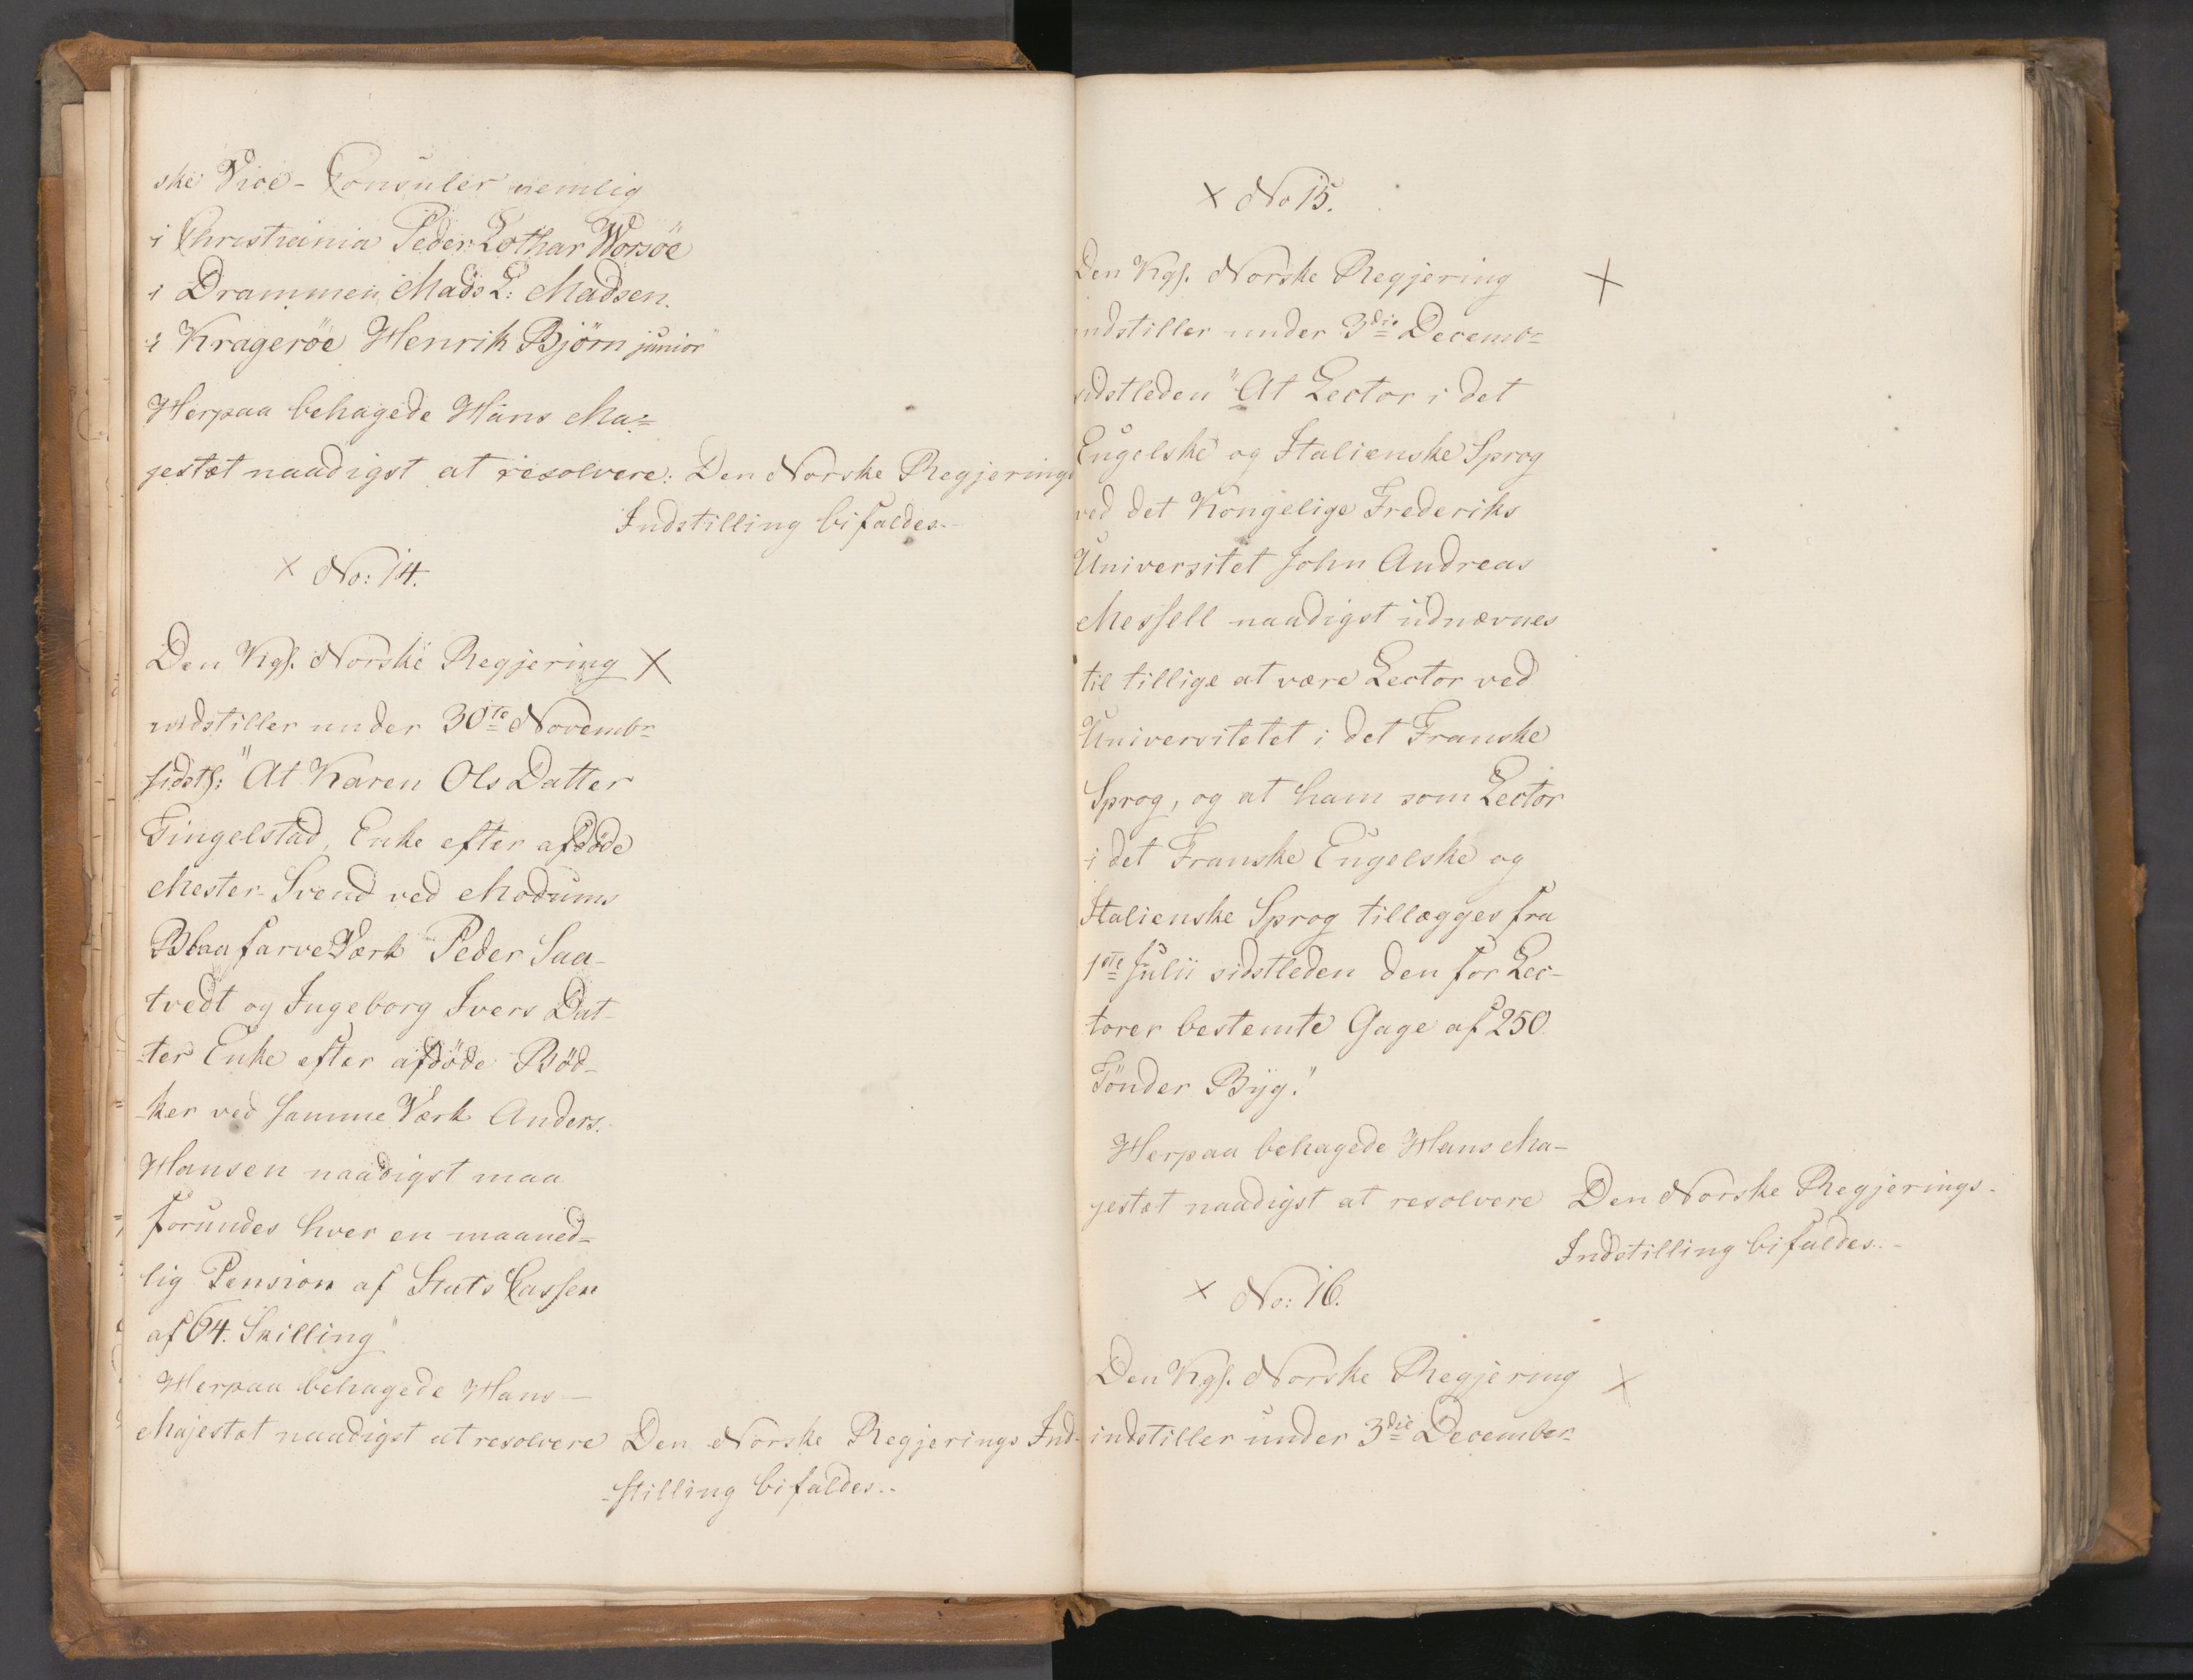 ske Vice-Consuler nemlig
i Christiania Peder Lothar Worsöe
i Drammen, Mads L: Madsen.
i Krageröe Henrik Björn junior"
Herpaa behagede Hans Ma=
jestæt naadigst at resolvere: Den Norske Regjerings
Indstilling bifaldes.-
× No: 14.
Den Kgl. Norske Regjering ×
indstiller under 30te Novembr
sidstl: "At Karen Ols Datter
Tingelstad, Enke efter afdöde
Mester-Svend ved Modums
Blaafarve Værk Peder Saa-
tvedt og Ingeborg Ivers Dat-
ter Enke efter afdöde Böd-
-ker ved samme Værk Anders
Hansen naadigst maa
forundes hver en maaned=
lig Pension af Stats Cassen
af 64. Skilling"
Herpaa behagede Hans-
Majestæt naadigst at resolvere Den Norske Regjerings Ind-
-stilling bifaldes.-
× No 15.
Den Kgl. Norske Regjering ×
indstiller under 3die Decembr
sidstleden "At Lector i det
Engelske og Italienske Sprog
ved det Kongelige Frederiks
Universitet John Andreas
Messell naadigst udnævnes
til tillige at være Lector ved
Universitetet i det Franske
Sprog, og at ham som Lector
i det Franske Engelske og
Italienske Sprog tillægges fra
1ste Julii sidstleden den for Lec-
torer bestemte Gage af 250
Tönder Byg."
Herpaa behagede Hans Ma-
jestæt naadigst at resolvere Den Norske Regjerings-
Indstilling bifaldes.-
× No: 16.
Den Kgl. Norske Regjering ×
indstiller under 3die December